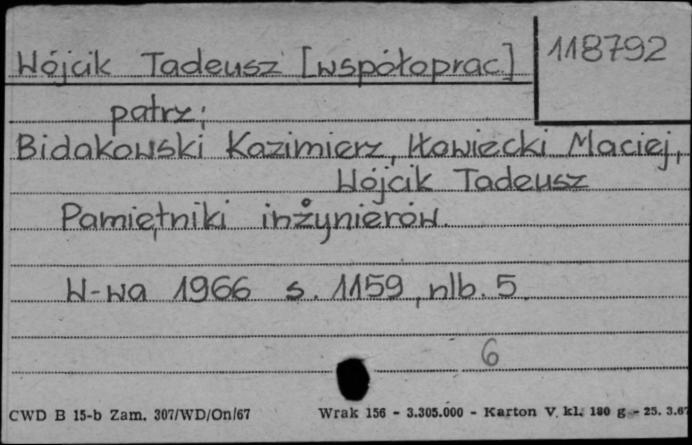 Wójcik Tadeusz [współoprac.] 118792
patrz:
Bidakowski Kazimierz, Iłowiecki Maciej,
Wójcik Tadeusz
Pamiętniki inżynierów.
W-wa 1966 s. 1159, nlb. 5.
6
CWD B 15-b Zam. 307/WD/On/67 Wrak 156 - 3.305.000 - Karton V. kl. 180 g - 25. 3.67